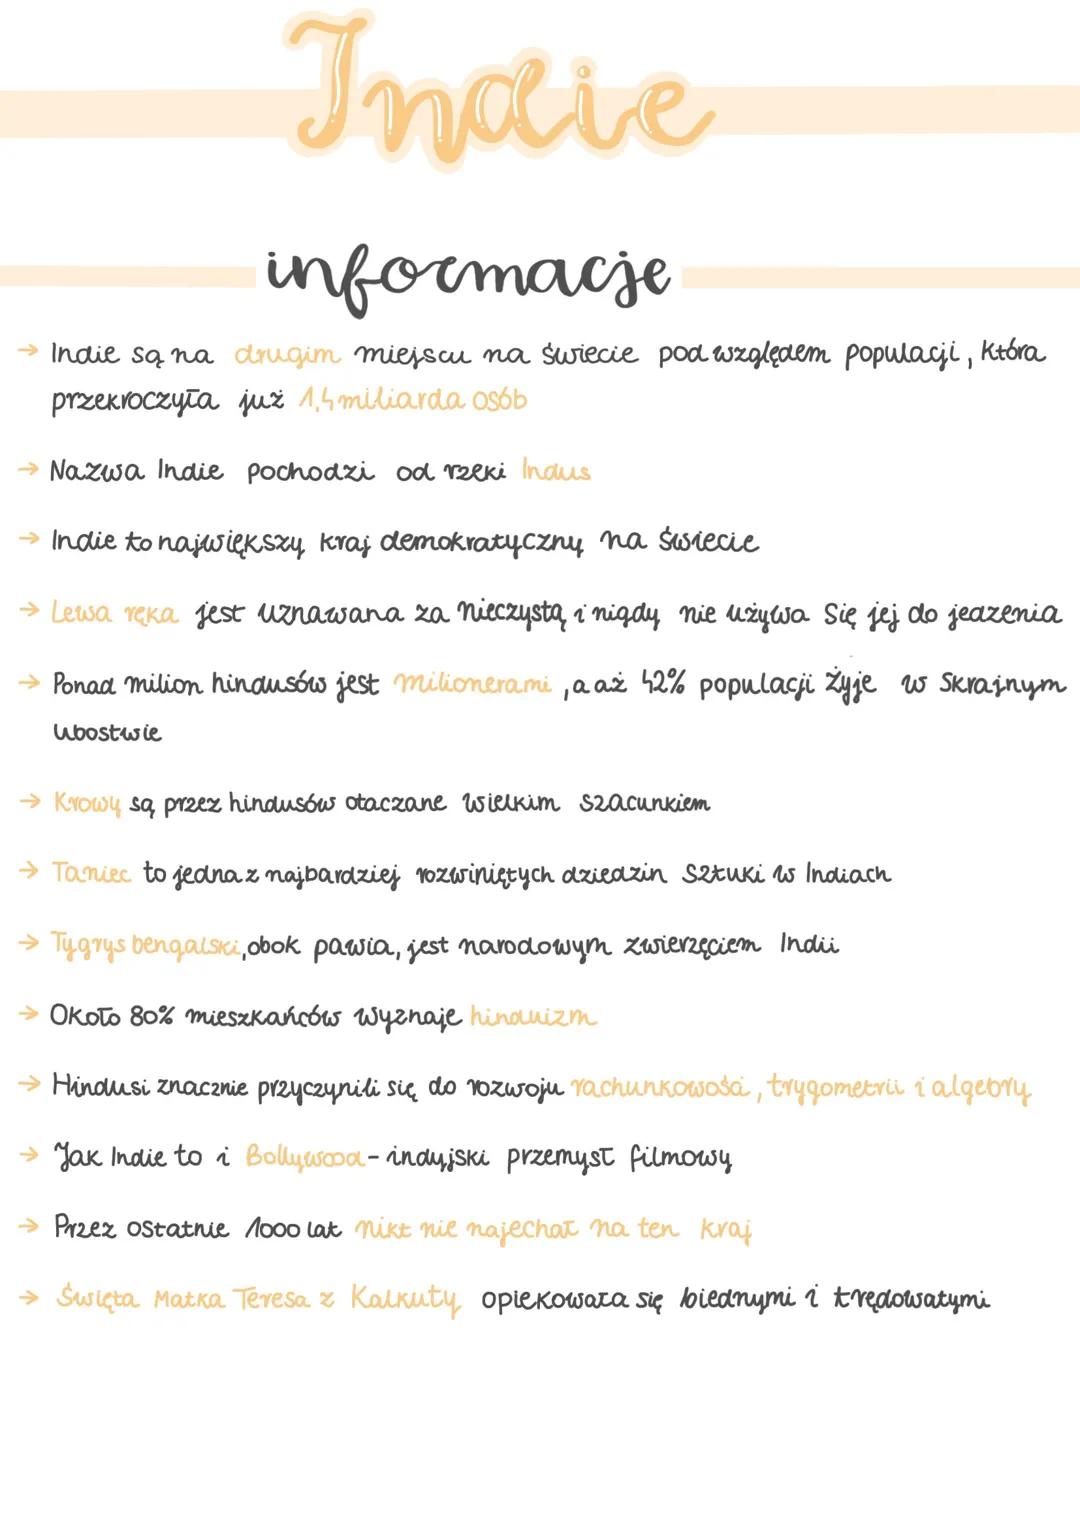 Indie
informacje
→ Indie są na drugim miejscu na świecie pod względem populacji, która
przekroczyła już 1,4 miliarda osób
→ Nazwa Indie pochodzi od rzeki Indus
→ Indie to największy kraj demokratyczny na świecie
→ Lewa ręka jest uznawana za nieczystą i nigdy nie używa się jej do jedzenia
→ Ponad milion hindusów jest milionerami, a aż 42% populacji żyje w skrajnym
ubóstwie
→ Krowy są przez hindusów otaczane wielkim szacunkiem
→ Taniec to jedna z najbardziej rozwiniętych dziedzin sztuki w Indiach
→ Tygrys bengalski, obok pawia, jest narodowym zwierzęciem Indii
→ Około 80% mieszkańców wyznaje hinduizm
→ Hindusi znacznie przyczynili się do rozwoju rachunkowości, trygometrii i algebry
→ Jak Indie to i Bollywood - indyjski przemysł filmowy
→ Przez ostatnie 1000 lat nikt nie najechał na ten kraj
→ Święta Matka Teresa z Kalkuty opiekowała się biednymi i trędowatymi